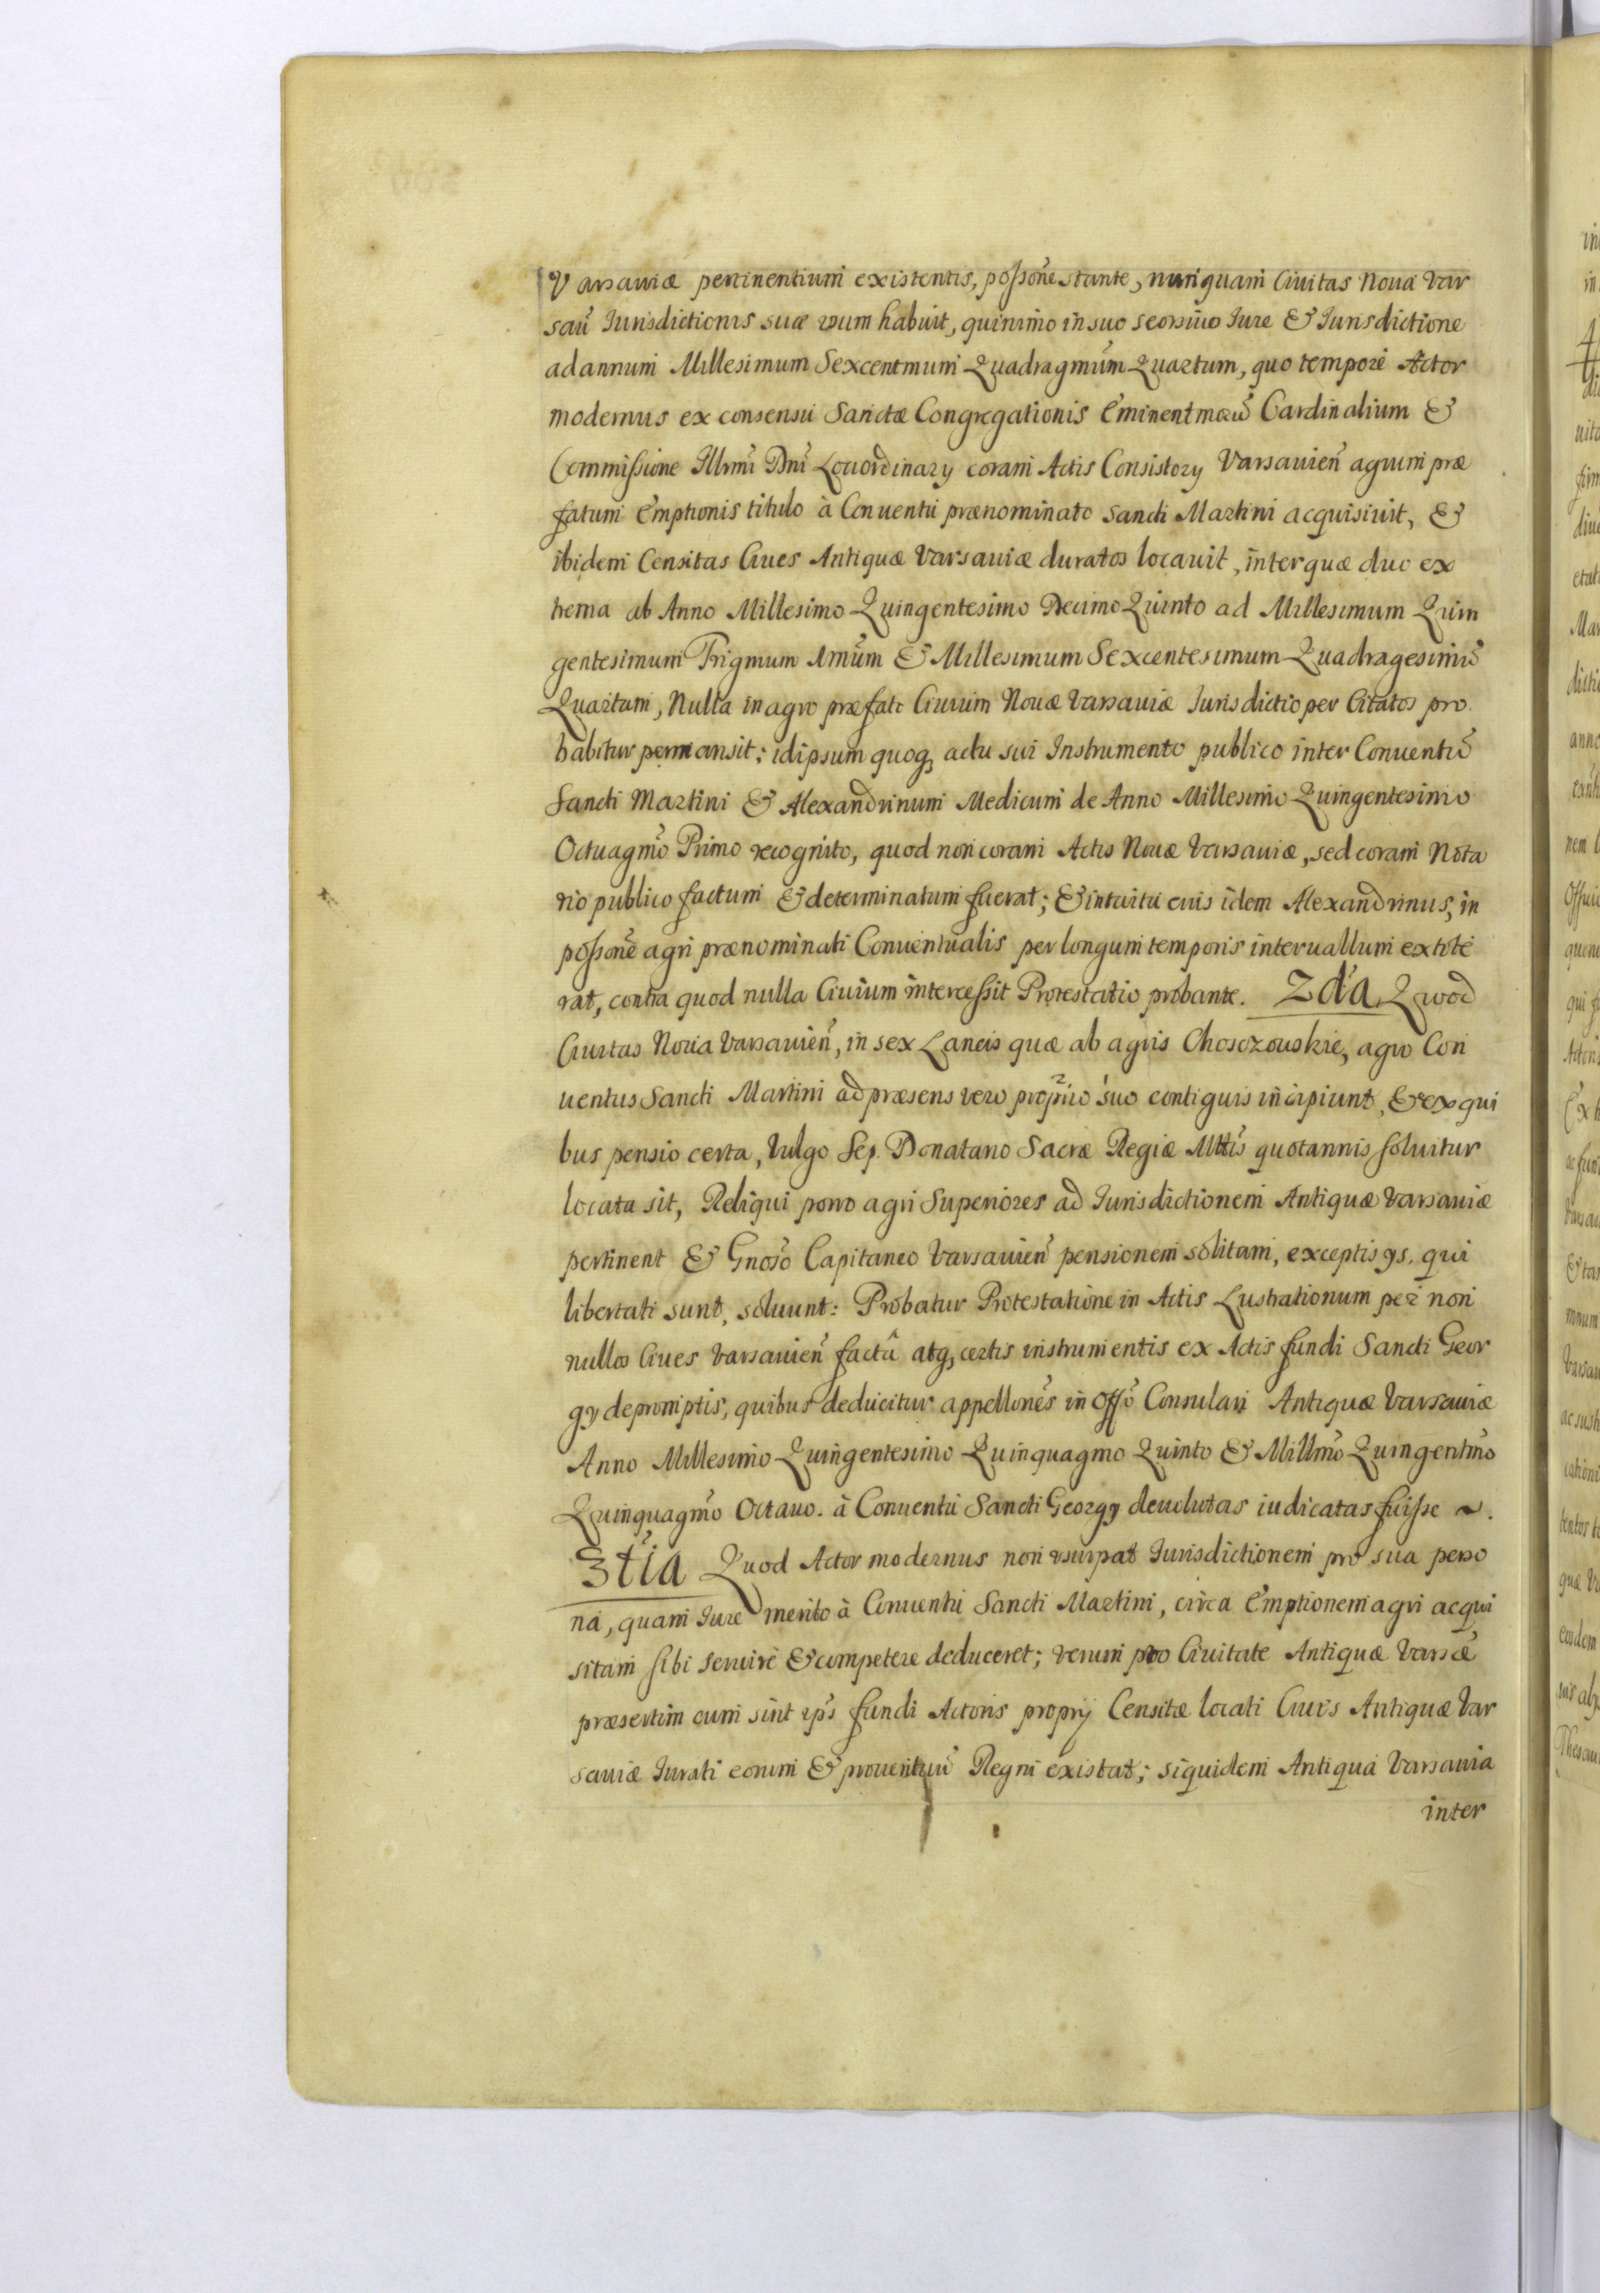 Varsaviæ pertinentium existentis, possone stante, nunquam Civitas Nova Var
sau Iurisdictionis suæ usum habuit, quinimo in suo seorsivo Iure & Iurisdictione
ad annum Millesimum Sexcentmum Quadragmum Quartum, quo tempore Actor
modernus ex consensu Sanctæ Congregationis Eminentmoru Cardinalium &
Commissione Illrmi Dni Loci ordinary coram Actis Consistory Varsauien agrum præ
fatum Emptionis titulo à Conuentu prænominato Sancti Martini acquisiuit, &
ibidem Censitas Ciues Antiquæ Varsauiæ Iuratos locauit, inter quæ duo ex
trema ab Anno Millesimo Quingentesimo Decimo Quinto ad Millesimum Quin
gentesimum Trigmum Imum & Millesimum Sexcentesimum Quadragesimu
Quartum, Nulla in agro præfato Ciuium Nouæ Varsauiæ Iurisdictio per Citatos pro
habitur permansit; idipsum quoq actu sui Instrumento publico inter Conuentu
Sancti Martini & Alexandrinum Medicum de Anno Millesimo Quingentesimo
Octuagmo Primo recognito, quod non coram Actis Nouæ Varsauiæ, sed coram Nota
rio publico factum & determinatum fuerat; & intuitu cuis idem Alexandrinus, in
possone agri prænominati Conuentualis per longum temporis interuallum extite
rat, contra quod nulla Ciuium intercessit Protestatio probante. 2da Quod
Ciuitas Noua Varsauien, in sex Laneis quæ ab agris Chosczouskie, agro Con
uentus Sancti Martini ad præsens vero proprio suo contiguis incipiunt, & ex qui
bus pensio certa, vulgo Sep. Donatano Sacræ Regiæ Mttis quotannis soluitur
locata sit, Reliqui porro agri Superiores ad Iurisdictionem Antiquæ Varsauiæ
pertinent & Gnoso Capitaneo Varsauien pensionem solitam, exceptis ys, qui
libertati sunt, soluunt: Probatur Protestatione in Actis Lustrationum per non
nullos Ciues Varsauien factâ atq, certis instrumentis ex Actis fundi Sancti Geor
gy depromptis, quibus deducitur appellones in Offo Consulari Antiquæ Varsauiæ
Anno Millesimo Quingentesimo Quinquagmo Quinto & Millmo Quingentmo
Quinquagmo Octauo. à Conuentu Sancti Georgy deuolutas iudicatas fuisse ~.
3tia Quod Actor modernus non usurpat Iurisdictionem pro sua perso
na, quam Iure merito à Conuentu Sancti Martini, circa Emptionem agri acqui
sitam sibi seruire & competere deduceret; verum pro Ciuitate Antiquæ Varsæ
præsertim cum sint ips fundi Actoris proprij Censitæ locati Ciuis Antiquæ Var
sauiæ Iurati eorum & prouentuu Regni existat; siquidem Antiqua Varsauia
inter